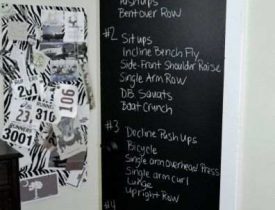 Pushups
Bentover Row
#2 Situps
Incline Bench Fly
Side-Front Shoulder Raise
Single Arm Row
DB Squats
Boat Crunch
#3 Decline Push Ups
Bicycle
Single arm overhead Press
Single arm curl
Lunge
Upright Row
#4
201
106
23
3001